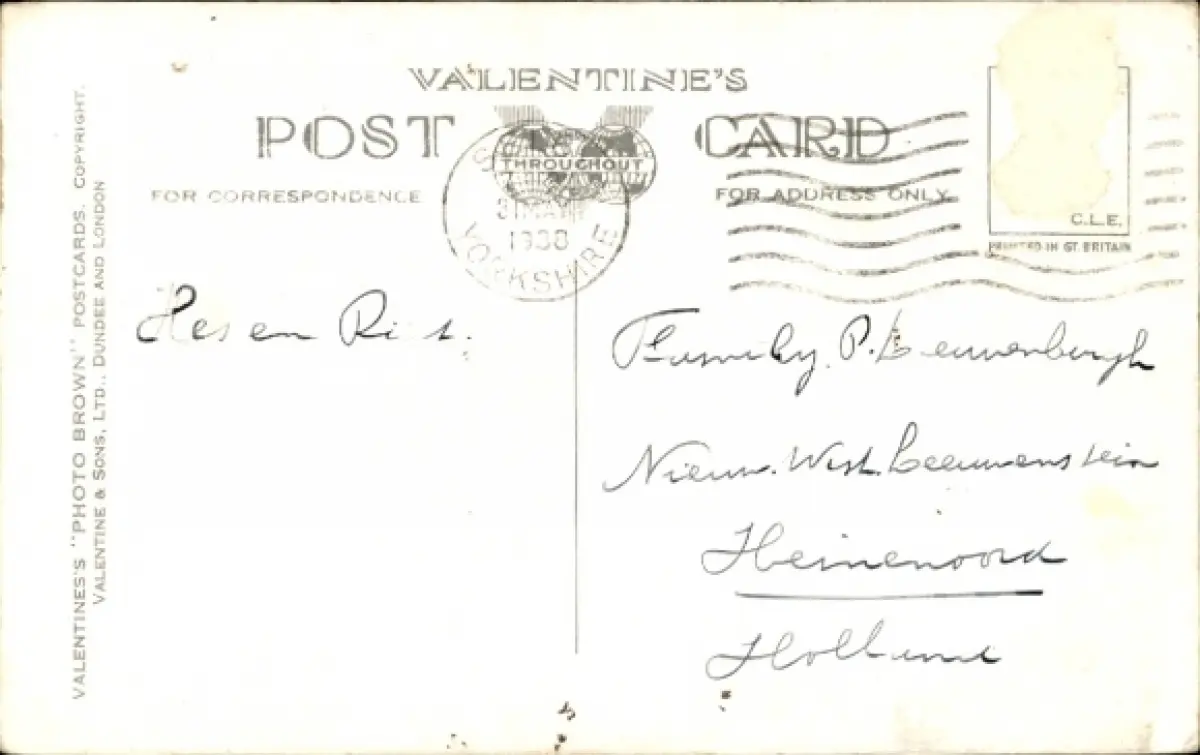 VALENTINE'S
POST CARD
THROUGHOUT
FOR CORRESPONDENCE
FOR ADDRESS ONLY.
1938
YORKSHIRE
C.L.E.
PRINTED IN GT. BRITAIN
VALENTINE'S "PHOTO BROWN" POSTCARDS. COPYRIGHT.
VALENTINE & SONS, LTD., DUNDEE AND LONDON
en
Family P. Leeuwenburgh
Nieuw. West. Leeuwenstein
Heinenoord
Holland